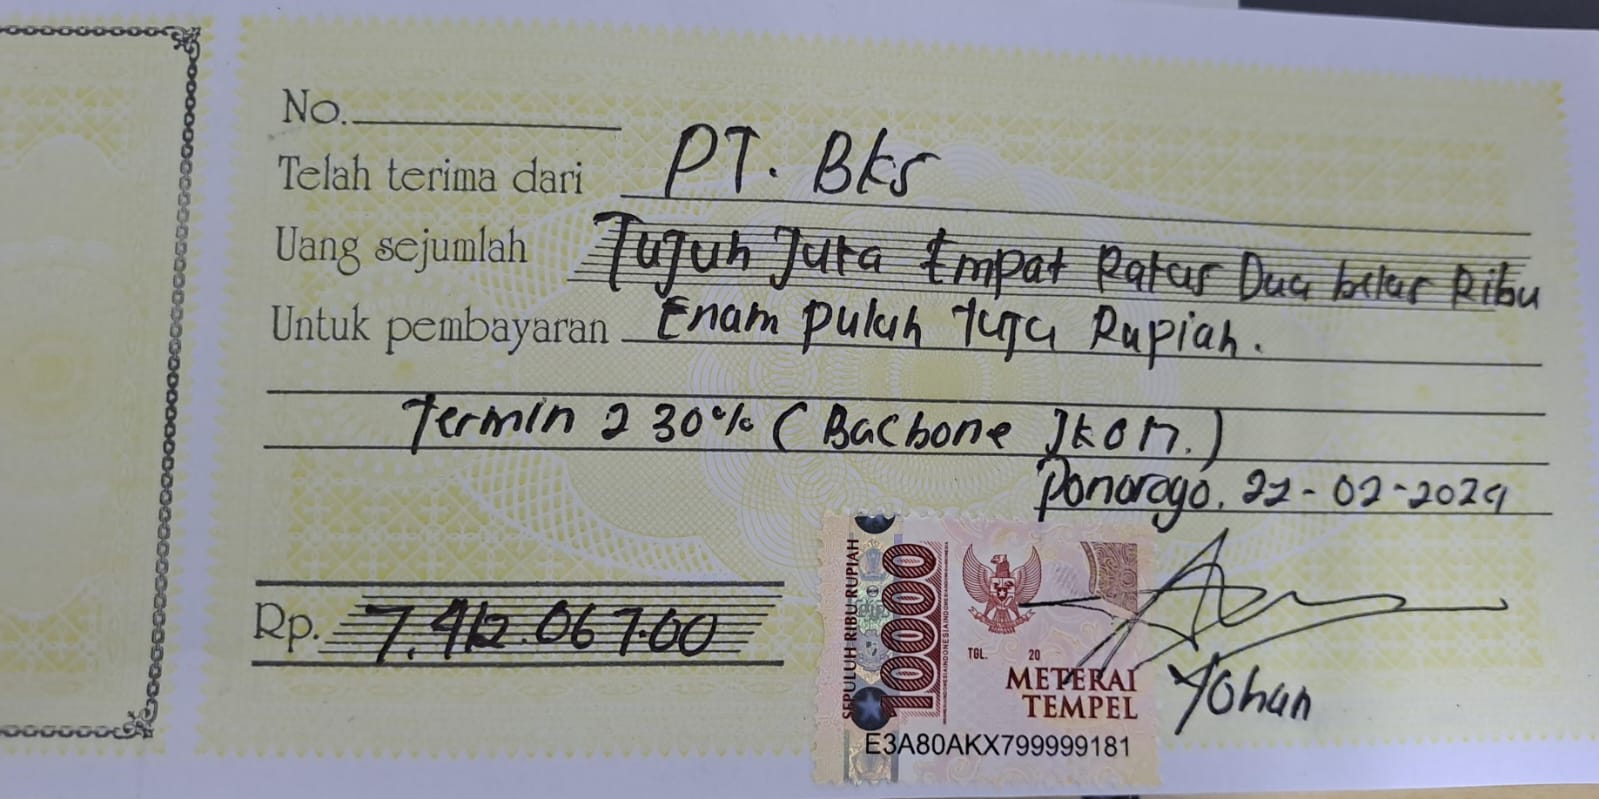 No.
Telah terima dari PT. Bks
Uang sejumlah Tujuh Juta Empat Ratus Dua belas Ribu
Untuk pembayaran Enam puluh tuju Rupiah.
Termin 2 30% ( Bacbone Jkom.)
Ponorogo. 22-02-2024
Rp. 7.412.067.00
SEPULUH RIBU RUPIAH
10000
TGL. 20
METERAI
TEMPEL
E3A80AKX799999181
Yohan